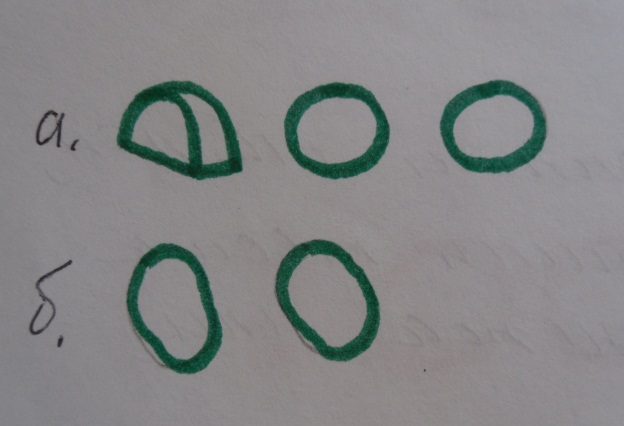 а.
б.